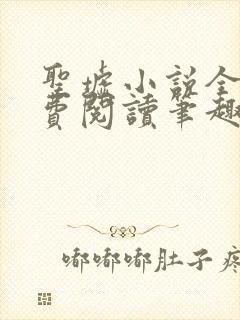 聖墟小説全
費閱讀筆趣
嘟嘟嘟肚子疼